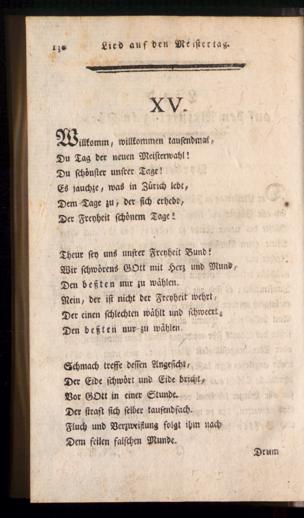 130 Lied auf den Meistertag.
XV.
Willkomm, willkommen tausendmal,
Du Tag der neuen Meisterwahl!
Du schönster unsrer Tage!
Es jauchze, was in Zürich lebt,
Dem Tage zu, der sich erhebt,
Der Freyheit schönem Tage!
Theur sey uns unsrer Freyheit Bund!
Wir schwörens GOtt mit Herz und Mund,
Den beßten nur zu wählen.
Nein, der ist nicht der Freyheit wehrt,
Der einen schlechten wählt und schweert,
Den beßten nur zu wählen.
Schmach treffe dessen Angesicht,
Der Eide schwört und Eide bricht,
Vor GOtt in einer Stunde.
Der straft sich selber tausendfach.
Fluch und Verzweiflung folgt ihm nach
Dem feilen falschen Munde.
Drum